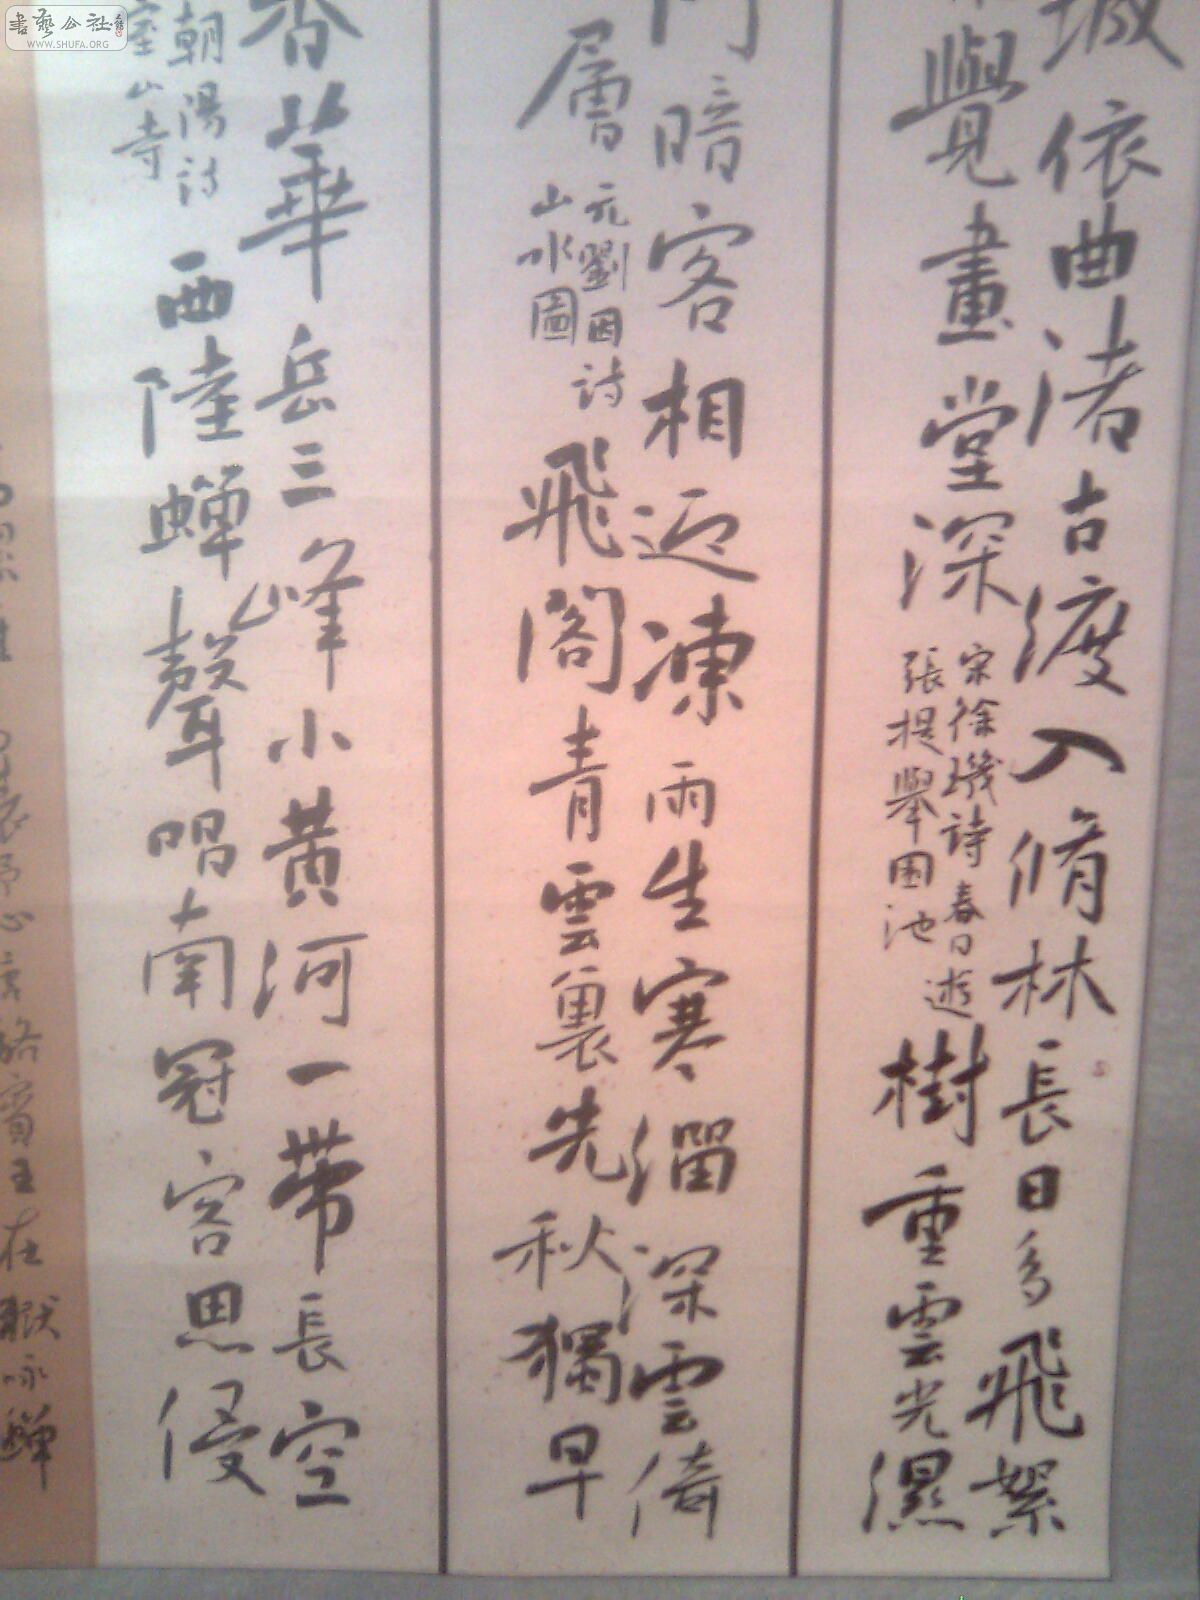 城依曲渚古渡入脩林長日多飛絮
覺畫堂深
宋徐璣詩春日遊
張提舉園池
樹重雲光濕
門暗客相迎凍雨生寒溜深雲倚
層
元劉因詩
山水圖
飛閣青雲裏先秋獨早
香華岳三峰小黃河一帶長空
朝陽詩
山寺
西陸蟬聲唱南冠客思侵
賓王在獄咏蟬
書藝公社
WWW.SHUFA.ORG